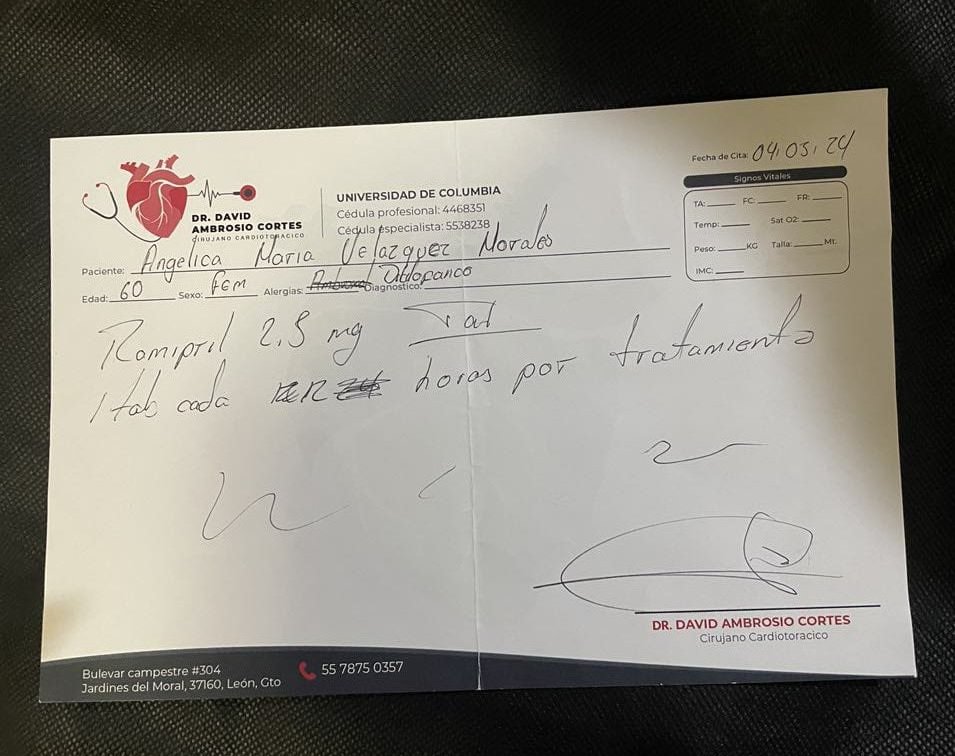 Fecha de Cita: 04,03,24
Signos Vitales
TA: FC: FR:
Temp: Sat O2:
Peso: KG Talla: Mt.
IMC:
DR. DAVID
AMBROSIO CORTES
CIRUJANO CARDIOTORACICO
UNIVERSIDAD DE COLUMBIA
Cédula profesional: 4468351
Cédula especialista: 5538238
Paciente: Angelica Maria Velazquez Morales
Edad: 60 Sexo: Fem Alergias: Diagnostico:
Ramipril 2,5 mg Tab
1 tab cada horas por tratamiento
DR. DAVID AMBROSIO CORTES
Cirujano Cardiotoracico
Bulevar campestre #304
Jardines del Moral, 37160, León, Gto
55 7875 0357